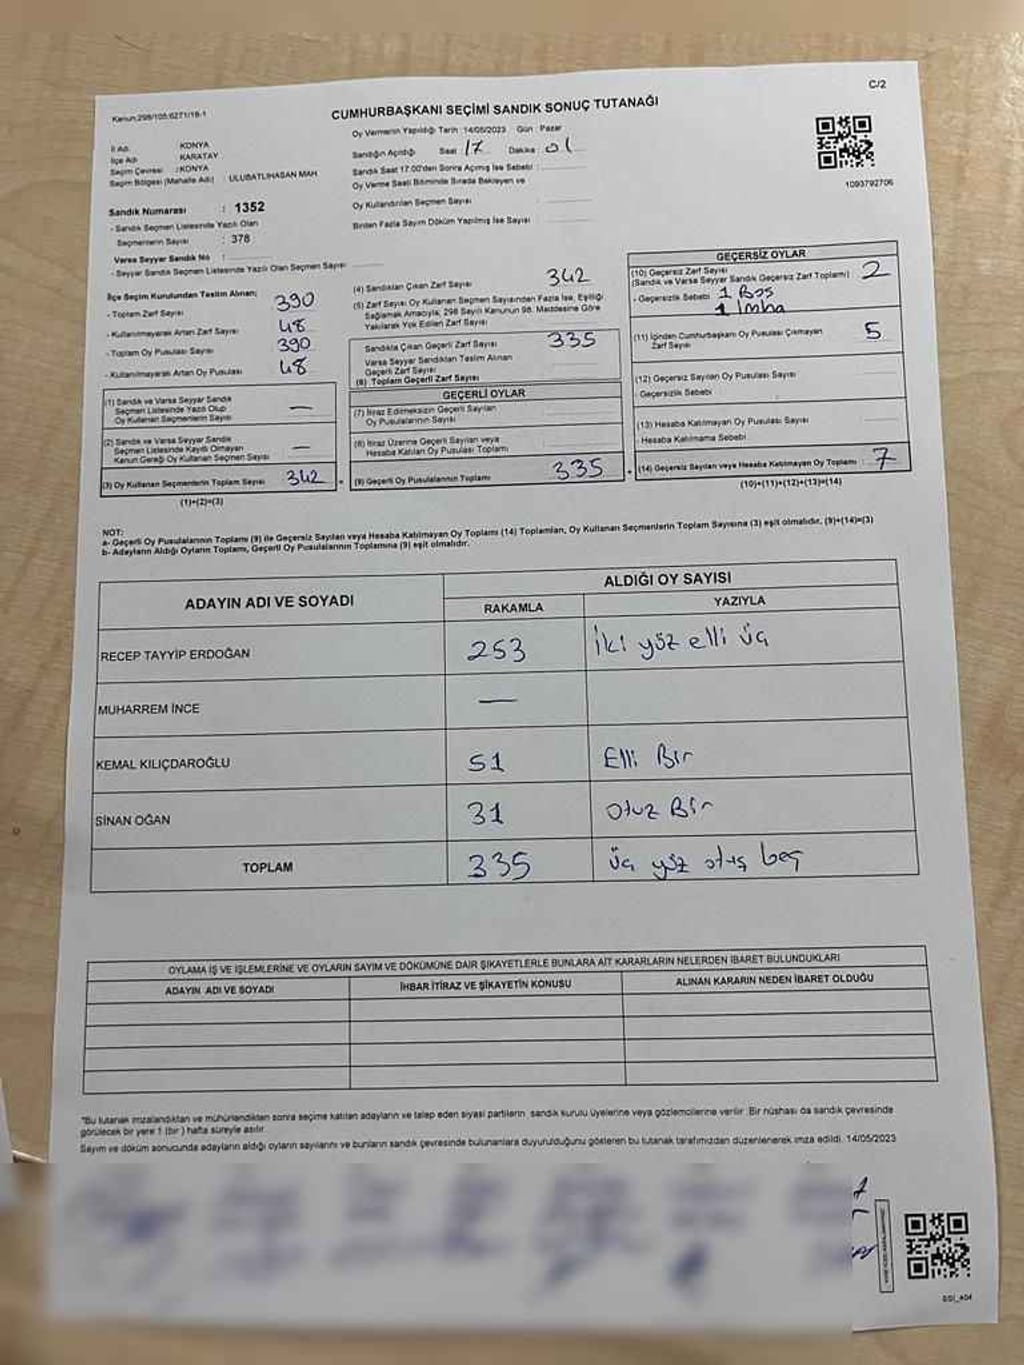 C/2
Kanun:298/105;6271/18-1
CUMHURBAŞKANI SEÇİMİ SANDIK SONUÇ TUTANAĞI
Oy Vermenin Yapıldığı Tarih :14/05/2023 Gün : Pazar
İl Adı : KONYA
İlçe Adı : KARATAY
Seçim Çevresi : KONYA
Seçim Bölgesi (Mahalle Adı) : ULUBATLIHASAN MAH.
Sandığın Açıldığı Saat : 17 Dakika : 01
Sandık Saat 17.00'den Sonra Açılmış İse Sebebi :
Oy Verme Saati Bitiminde Sırada Bekleyen ve
Oy Kullandırılan Seçmen Sayısı :
Birden Fazla Sayım Döküm Yapılmış İse Sayısı :
1093792706
Sandık Numarası : 1352
- Sandık Seçmen Listesinde Yazılı Olan
Seçmenlerin Sayısı : 378
Varsa Seyyar Sandık No :
- Seyyar Sandık Seçmen Listesinde Yazılı Olan Seçmen Sayısı :
İlçe Seçim Kurulundan Teslim Alınan;
- Toplam Zarf Sayısı : 390
- Kullanılmayarak Artan Zarf Sayısı : 48
- Toplam Oy Pusulası Sayısı : 390
- Kullanılmayarak Artan Oy Pusulası : 48
(1) Sandık ve Varsa Seyyar Sandık
Seçmen Listesinde Yazılı Olup
Oy Kullanan Seçmenlerin Sayısı : —
(2) Sandık ve Varsa Seyyar Sandık
Seçmen Listesinde Kayıtlı Olmayan
Kanun Gereği Oy Kullanan Seçmen Sayısı : —
(3) Oy Kullanan Seçmenlerin Toplam Sayısı : 342
(1)+(2)=(3)
(4) Sandıktan Çıkan Zarf Sayısı : 342
(5) Zarf Sayısı Oy Kullanan Seçmen Sayısından Fazla İse, Eşitliği
Sağlamak Amacıyla, 298 Sayılı Kanunun 98. Maddesine Göre
Yakılarak Yok Edilen Zarf Sayısı :
Sandıkta Çıkan Geçerli Zarf Sayısı : 335
Varsa Seyyar Sandıktan Teslim Alınan
Geçerli Zarf Sayısı :
(6) Toplam Geçerli Zarf Sayısı :
GEÇERLİ OYLAR
(7) İtiraz Edilmeksizin Geçerli Sayılan
Oy Pusulalarının Sayısı :
(8) İtiraz Üzerine Geçerli Sayılan veya
Hesaba Katılan Oy Pusulası Toplamı :
(9) Geçerli Oy Pusulalarının Toplamı : 335
GEÇERSİZ OYLAR
(10) Geçersiz Zarf Sayısı
(Sandık ve Varsa Seyyar Sandık Geçersiz Zarf Toplamı) : 2
- Geçersizlik Sebebi : 1 Boş
1 İmha
(11) İçinden Cumhurbaşkanı Oy Pusulası Çıkmayan
Zarf Sayısı : 5
(12) Geçersiz Sayılan Oy Pusulası Sayısı :
Geçersizlik Sebebi :
(13) Hesaba Katılmayan Oy Pusulası Sayısı :
- Hesaba Katılmama Sebebi :
(14) Geçersiz Sayılan veya Hesaba Katılmayan Oy Toplamı : 7
(10)+(11)+(12)+(13)=(14)
NOT:
a- Geçerli Oy Pusulalarının Toplamı (9) ile Geçersiz Sayılan veya Hesaba Katılmayan Oy Toplamı (14) Toplamları, Oy Kullanan Seçmenlerin Toplam Sayısına (3) eşit olmalıdır. (9)+(14)=(3)
b- Adayların Aldığı Oyların Toplamı, Geçerli Oy Pusulalarının Toplamına (9) eşit olmalıdır.
ADAYIN ADI VE SOYADI
ALDIĞI OY SAYISI
RAKAMLA YAZIYLA
RECEP TAYYİP ERDOĞAN 253 İki yüz elli üç
MUHARREM İNCE —
KEMAL KILIÇDAROĞLU 51 Elli Bir
SİNAN OĞAN 31 Otuz Bir
TOPLAM 335 üç yüz otuz beş
OYLAMA İŞ VE İŞLEMLERİNE VE OYLARIN SAYIM VE DÖKÜMÜNE DAİR ŞİKAYETLERLE BUNLARA AİT KARARLARIN NELERDEN İBARET BULUNDUKLARI
ADAYIN ADI VE SOYADI İHBAR İTİRAZ VE ŞİKAYETİN KONUSU ALINAN KARARIN NEDEN İBARET OLDUĞU
*Bu tutanak imzalandıktan ve mühürlendikten sonra seçime katılan adayların ve talep eden siyasi partilerin, sandık kurulu üyelerine veya gözlemcilerine verilir. Bir nüshası da sandık çevresinde
görülecek bir yere 1 (bir) hafta süreyle asılır.
Sayım ve döküm sonucunda adayların aldığı oyların sayılarını ve bunların sandık çevresinde bulunanlara duyurulduğunu gösteren bu tutanak tarafımızdan düzenlenerek imza edildi. 14/05/2023